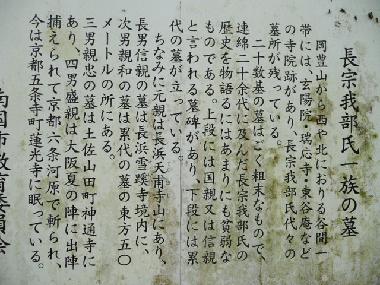 長宗我部氏一族の墓
岡豊山から西や北におりる谷間一
帯には、玄陽院・瑞応寺・東谷庵など
の寺院跡があり、長宗我部氏代々の
墓所が残っている。
二十数基の墓はごく粗末なもので、
連綿二十余代に及んだ長宗我部氏の
歴史を物語るにはあまりにも貧弱な
ものである。上段には国親又は信親
と言われる墓碑があり、下段には累
代の墓が立っている。
ちなみに元親は長浜天甫寺山にあり、
長男信親の墓は長浜雪蹊寺境内に、
次男親和の墓は累代の墓の東方五〇
メートルの所にある。
三男親忠の墓は土佐山田町神通寺に
あり、四男盛親は大阪夏の陣に出陣
捕えられて京都六条河原で斬られ、
今は京都五条寺町蓮光寺に眠っている。
南国市教育委員会